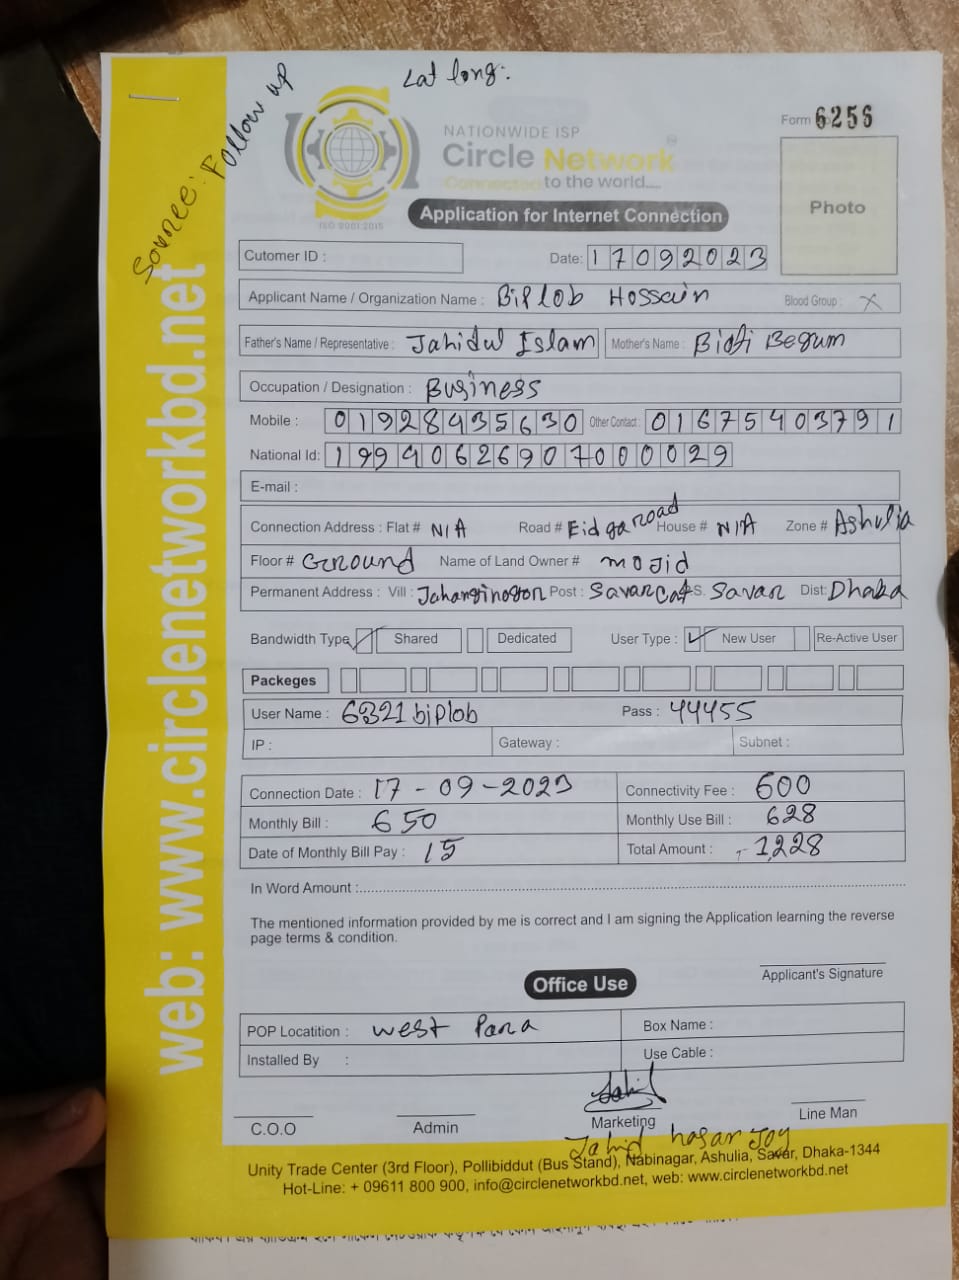 Lat long:
Source: Follow up
NATIONWIDE ISP
Circle Network
Connected to the world....
ISO 9001:2015
Form 6256
Photo
Application for Internet Connection
Cutomer ID :
Date: 17092023
Applicant Name / Organization Name : Biplob Hossain Blood Group : X
Father's Name / Representative : Jahidul Islam Mother's Name : Begum
Occupation / Designation : Business
Mobile : 01928435630 Other Contact : 01675403791
National Id: 19940626907000029
E-mail :
Connection Address : Flat # N/A Road # Eidga road House # N/A Zone # Ashulia
Floor # Ground Name of Land Owner # mojid
Permanent Address : Vill : Post : Savar S. Savar Dist: Dhaka
Bandwidth Type Shared Dedicated User Type : New User Re-Active User
Packeges
User Name : 6321 biplob Pass : 44455
IP : Gateway : Subnet :
Connection Date : 17-09-2023 Connectivity Fee : 600
Monthly Bill : 650 Monthly Use Bill : 628
Date of Monthly Bill Pay : 15 Total Amount : 1228
In Word Amount :
The mentioned information provided by me is correct and I am signing the Application learning the reverse
page terms & condition.
Applicant's Signature
Office Use
POP Locatition : west Para Box Name :
Installed By : Use Cable :
C.O.O Admin Marketing Line Man
Jahid hasan Joy
Unity Trade Center (3rd Floor), Pollibiddut (Bus Stand), Nabinagar, Ashulia, Savar, Dhaka-1344
Hot-Line: + 09611 800 900, info@circlenetworkbd.net, web: www.circlenetworkbd.net
web: www.circlenetworkbd.net